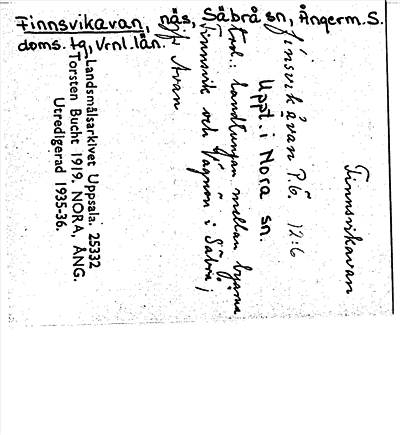 Finnsvikavan, näs, Säbrå sn, Ångerm. S.
doms. tg, Vrnl. län.
Finnsvikavan
finsvikåvan P.6. 12:6
Uppt. i Nora sn.
landtungan mellan byarna
Finnsvik och i Säbrå,
jfr Avan
Landsmålsarkivet Uppsala. 25332
Torsten Bucht 1919. NORA, ÅNG.
Utredigerad 1935-36.